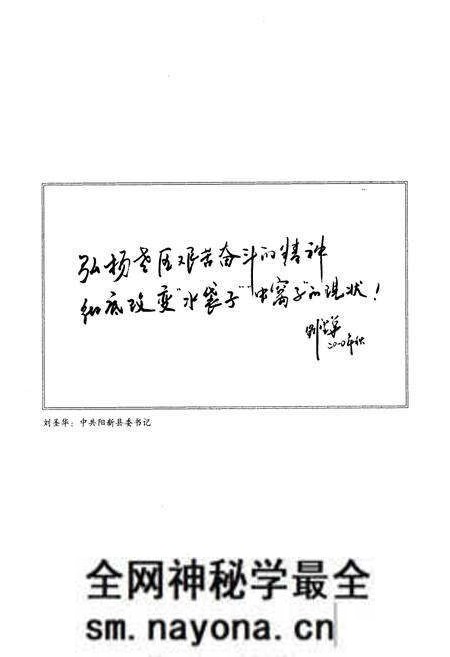 弘扬老区艰苦奋斗的精神
彻底改变"水袋子""虫窝子"的现状!
刘圣华
2000年秋
刘圣华:中共阳新县委书记
全网神秘学最全
sm.nayona.cn